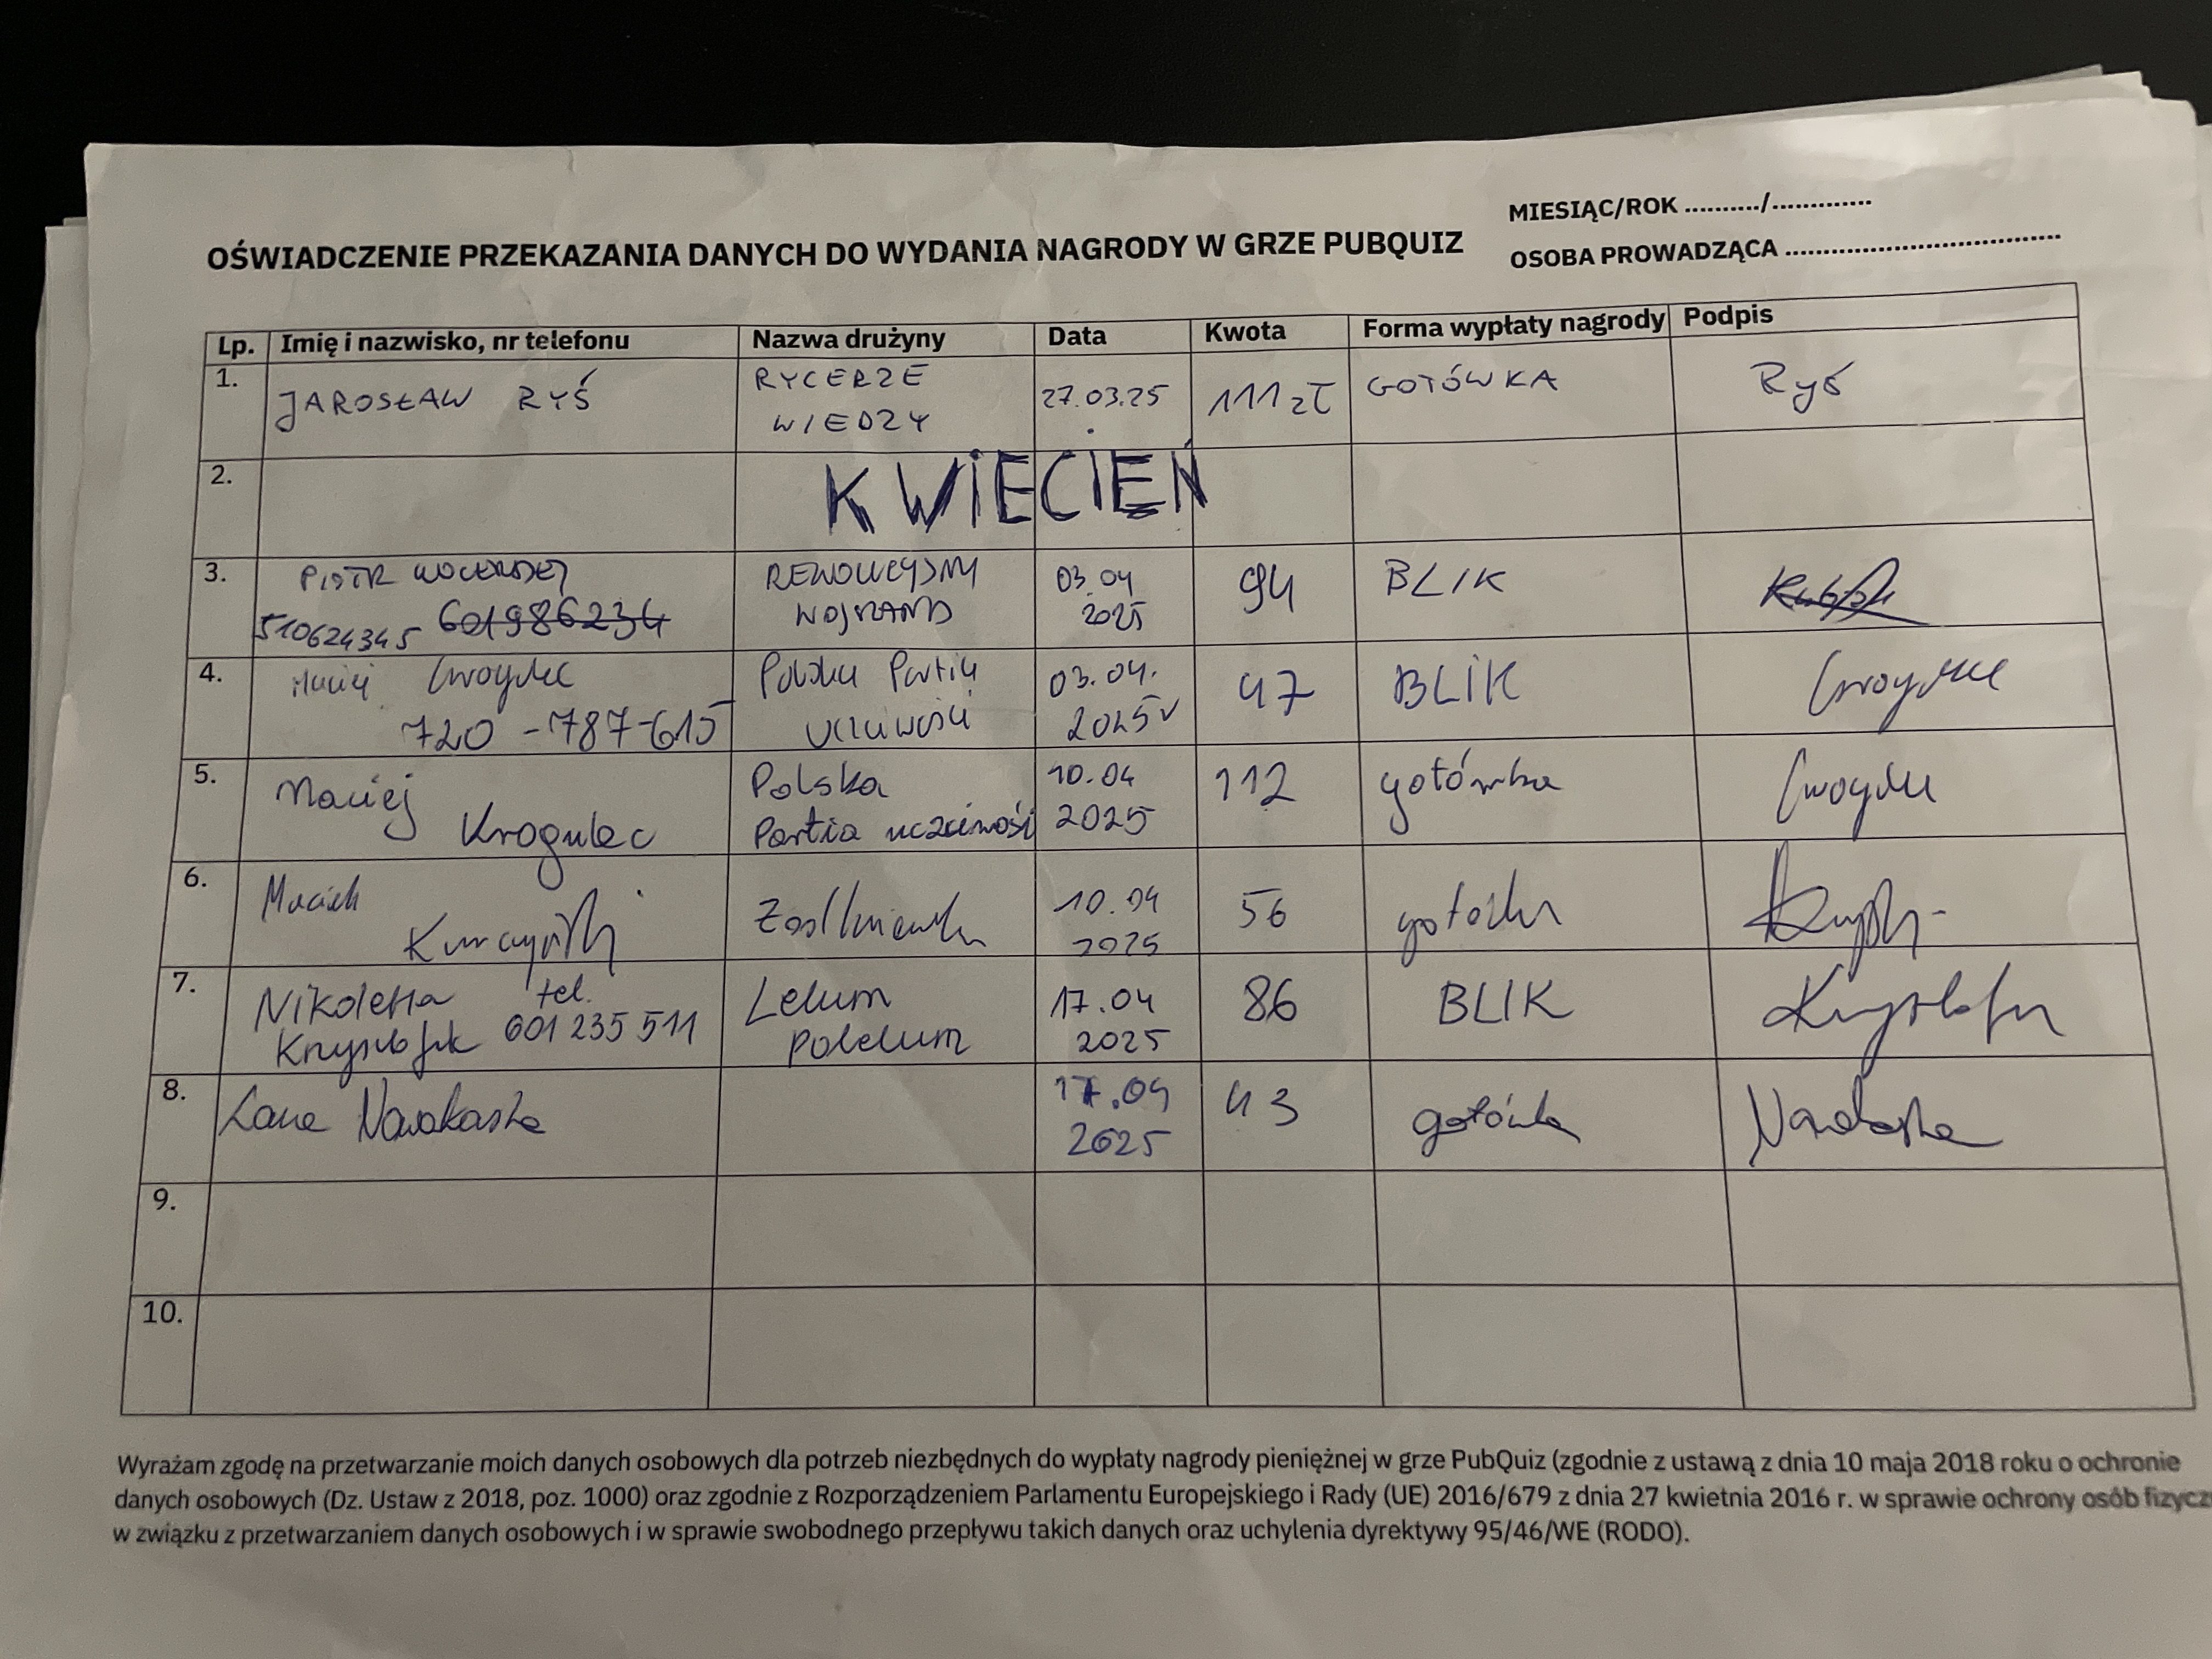 MIESIĄC/ROK ........../.............
OŚWIADCZENIE PRZEKAZANIA DANYCH DO WYDANIA NAGRODY W GRZE PUBQUIZ
OSOBA PROWADZĄCA ....................................
Lp. Imię i nazwisko, nr telefonu Nazwa drużyny Data Kwota Forma wypłaty nagrody Podpis
1. JAROSŁAW RYŚ RYCERZE WIEDZY 27.03.25 111 zł GOTÓWKA Ryś
2. KWIECIEŃ
3. PIOTR 03.04 94 BLIK
510624345 601986234 2025
4. Maciej Polska Partia 03.04. 47 BLIK
720-787-615 uczciwości 2025
5. Maciej Polska 10.04 112 gotówka
Krogulec Partia uczciwości 2025
6. Maciek 10.04 56 gotówka
2025
7. Nikoletta tel. Lelum 17.04 86 BLIK
Krzysztofik 601 235 511 Polelum 2025
8. Nowakowska 17.04 43 gotówka
2025
9.
10.
Wyrażam zgodę na przetwarzanie moich danych osobowych dla potrzeb niezbędnych do wypłaty nagrody pieniężnej w grze PubQuiz (zgodnie z ustawą z dnia 10 maja 2018 roku o ochronie
danych osobowych (Dz. Ustaw z 2018, poz. 1000) oraz zgodnie z Rozporządzeniem Parlamentu Europejskiego i Rady (UE) 2016/679 z dnia 27 kwietnia 2016 r. w sprawie ochrony osób
w związku z przetwarzaniem danych osobowych i w sprawie swobodnego przepływu takich danych oraz uchylenia dyrektywy 95/46/WE (RODO).